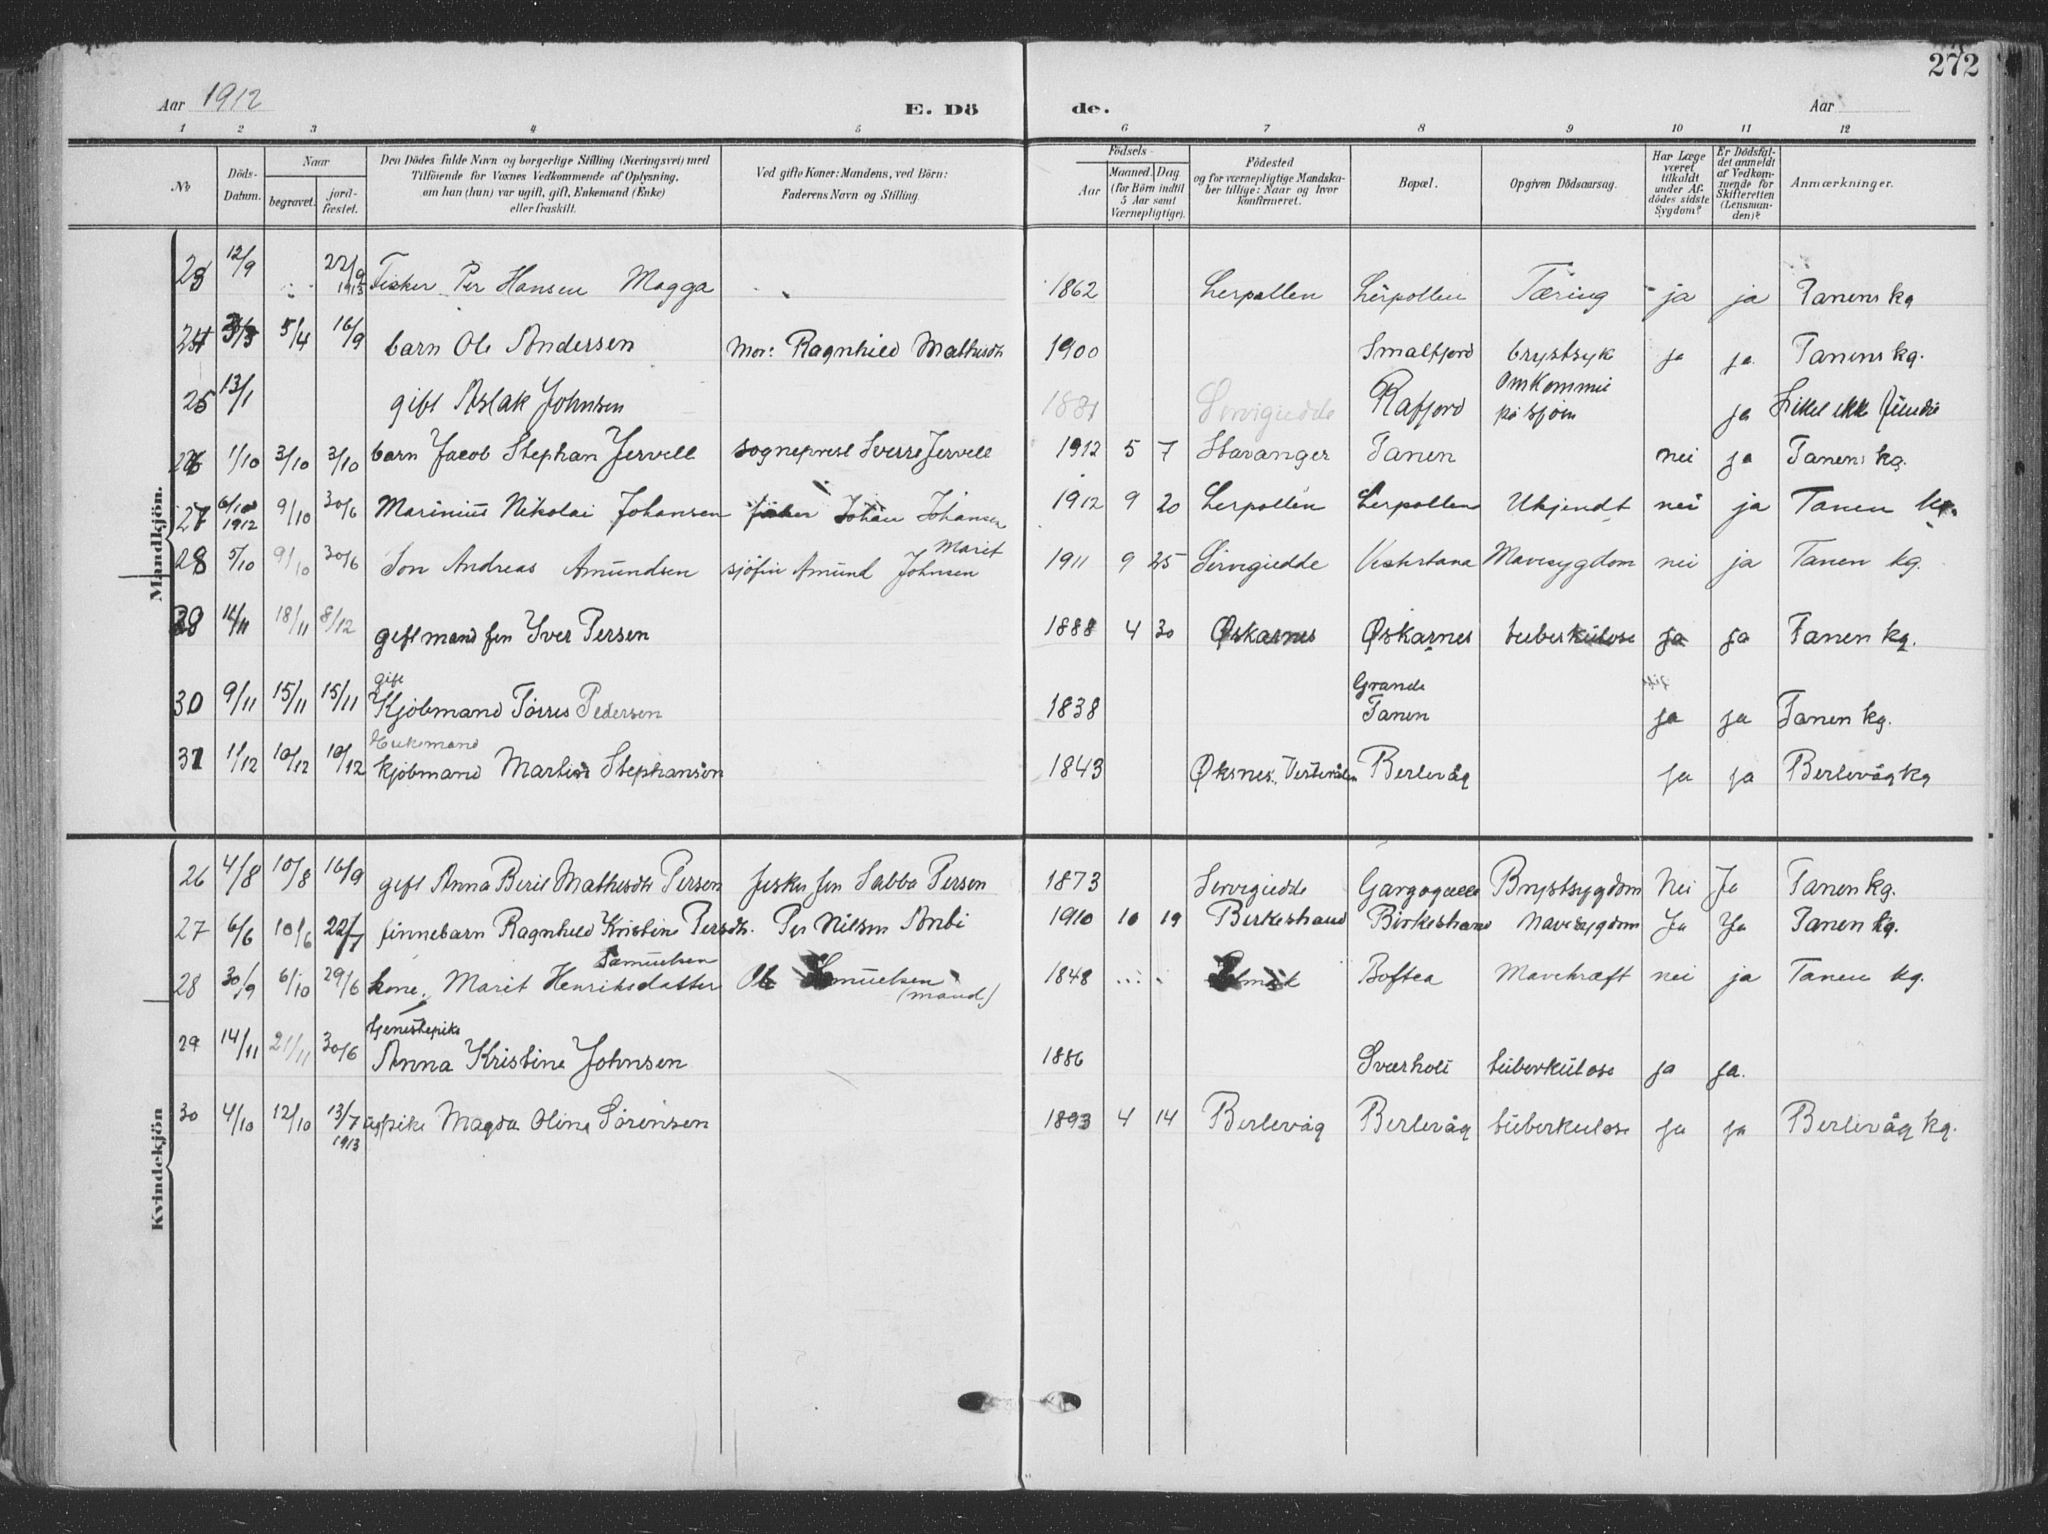 272
Aar 1912 E. Dö de. Aar
1 2 3 4 5 6 7 8 9 10 11 12
No
Döds-Datum.
Naar
begravet.
jord-fæstet.
Den Dödes fulde Navn og borgerlige Stilling (Næringsvei) med
Tilföiende for Voxnes Vedkommende af Oplysning,
om han (hun) var ugift, gift, Enkemand (Enke)
eller fraskilt.
Ved gifte Koner: Mandens, ved Börn:
Faderens Navn og Stilling.
Födsels-
Aar
Maaned. Dag
(for Börn indtil
5 Aar samt
Værnepligtige).
Födested
og for værnepligtige Mandska-
ber tillige: Naar og hvor
Konfirmeret.
Bopæl.
Opgiven Dödsaarsag.
Har Læge
været
tilkaldt
under Af-
dödes sidste
Sygdom?
Er Dödsfal-
det anmeldt
af Vedkom-
mende for
Skifteretten
(Lensman-
den)?
Anmærkninger.
Mandkjön.
23 12/9 22/9 1913 Fisker Per Hansen Magga 1862 Lerpollen Lerpollen Tæring ja ja Tanens kg
24 5/4 16/9 barn Ole Andersen Mor: Ragnhild Mathisdt 1900 Smalfjord brystsyk ja ja Tanens kg.
25 13/1 gift Aslak Johnsen 1881 Sirvigiedde Rafjord omkommet på sjøen ja
26 1/10 3/10 3/10 barn Jacob Stephan Jervell sogneprest Sverre Jervell 1912 5 7 Stavanger Tanen nei ja Tanens kg.
27 6/10 1912 9/10 30/6 Marinius Nikolai Johansen fisker Johan Johansen 1912 9 20 Lerpollen Lerpollen Ukjendt nei ja Tanen kg.
28 5/10 9/10 30/6 Son Andreas Amundsen sjöfin Amund Johnsen Marit 1911 9 25 Sirvigiedde Vestertana Mavesygdom nei ja Tanen kg.
29 14/11 18/11 8/12 gift mand fin Iver Persen 1888 4 30 Øskarnes Øskarnes tuberkulose ja ja Tanen kg.
30 9/11 15/11 15/11 gift Kjøbmand Tørres Pedersen 1838 Grande Tanen ja ja Tanen kg.
31 1/12 10/12 10/12 Enkemand kjøbmand Martin Stephansen 1843 Øksnes, Vesterålen Berlevåg ja ja Berlevåg kg
Kvindekjön
26 4/8 10/8 16/9 gift Anna Berit Mathisdt Persen fisker fin Sabba Persen 1873 Sirvigiedde Gargogæcce Brystsygdom Nei Ja Tanen kg.
27 6/6 10/6 22/7 finnebarn Ragnhild Kristine Persdt. Per Nilsen Anbi 1910 10 19 Birkestrand Birkestrand Mavesygdom Ja Ja Tanen kg.
28 30/9 6/10 29/6 kone, Marit Henriksdatter Samuelsen Ole Samuelsen (mand) 1848 Boftsa Mavekræft nei ja Tanen kg.
29 14/11 21/11 30/6 tjenestepike Anna Kristine Johnsen 1886 Sværholt tuberkulose ja ja.
30 4/10 12/10 13/7 1913 ug. pike Magda Oline Sørensen 1893 4 14 Berlevåg Berlevåg tuberkulose ja ja Berlevåg kg.